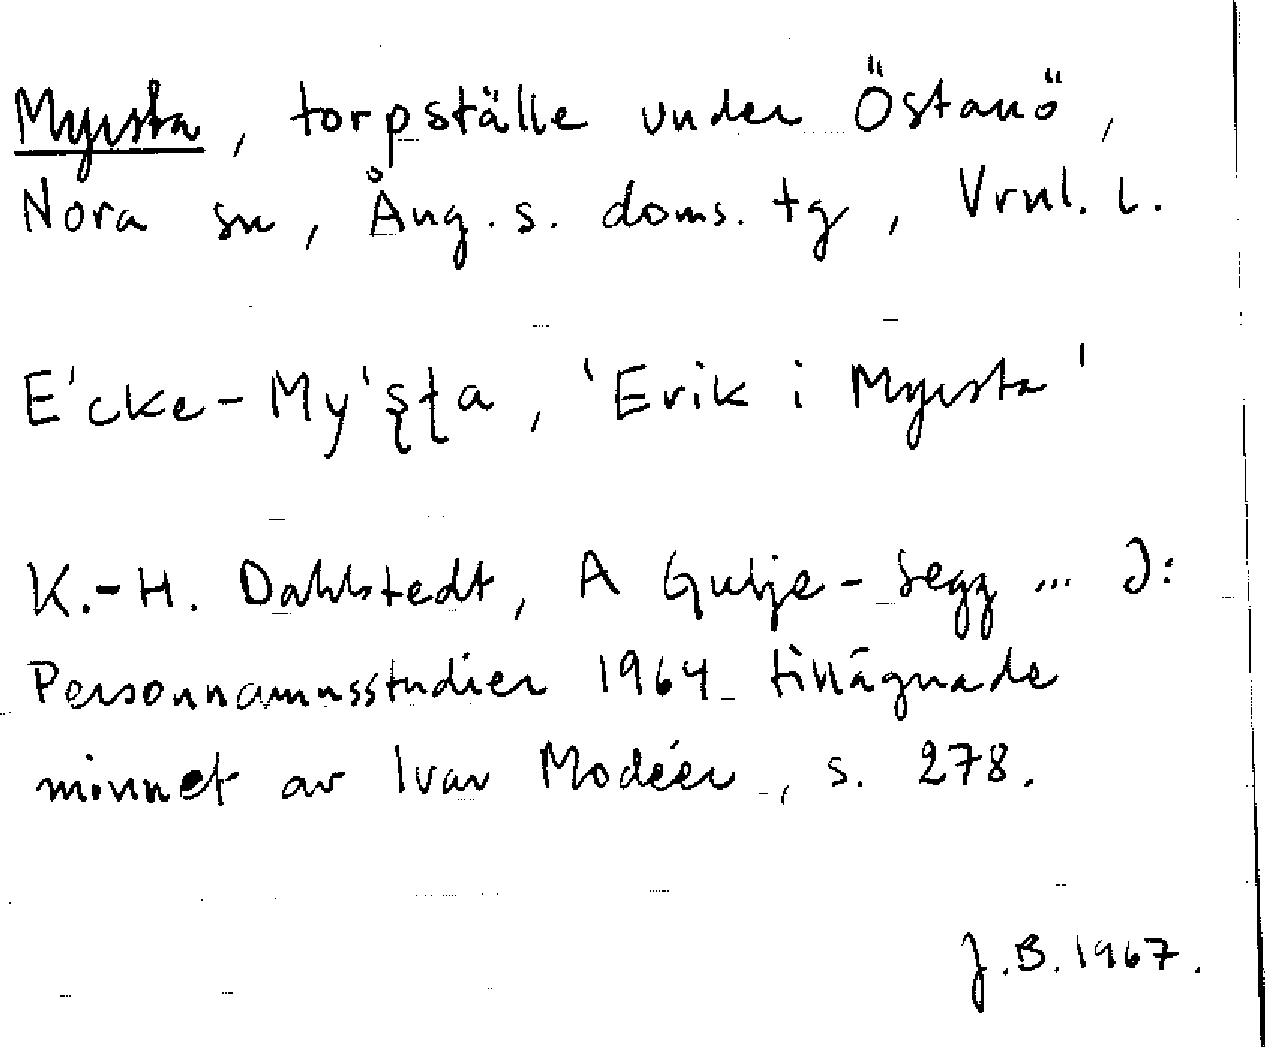 Myrsta, torpställe under Östanö,
Nora sn, Ång. s. doms. tg, Vrnl. l.
E'cke-My'ʂʈa, 'Erik i Myrsta'
K.-H. Dahlstedt, A Gubje-Segg ... I:
Personnamnsstudier 1964 tillägnade
minnet av Ivar Modéer, s. 278.
J.B. 1967.